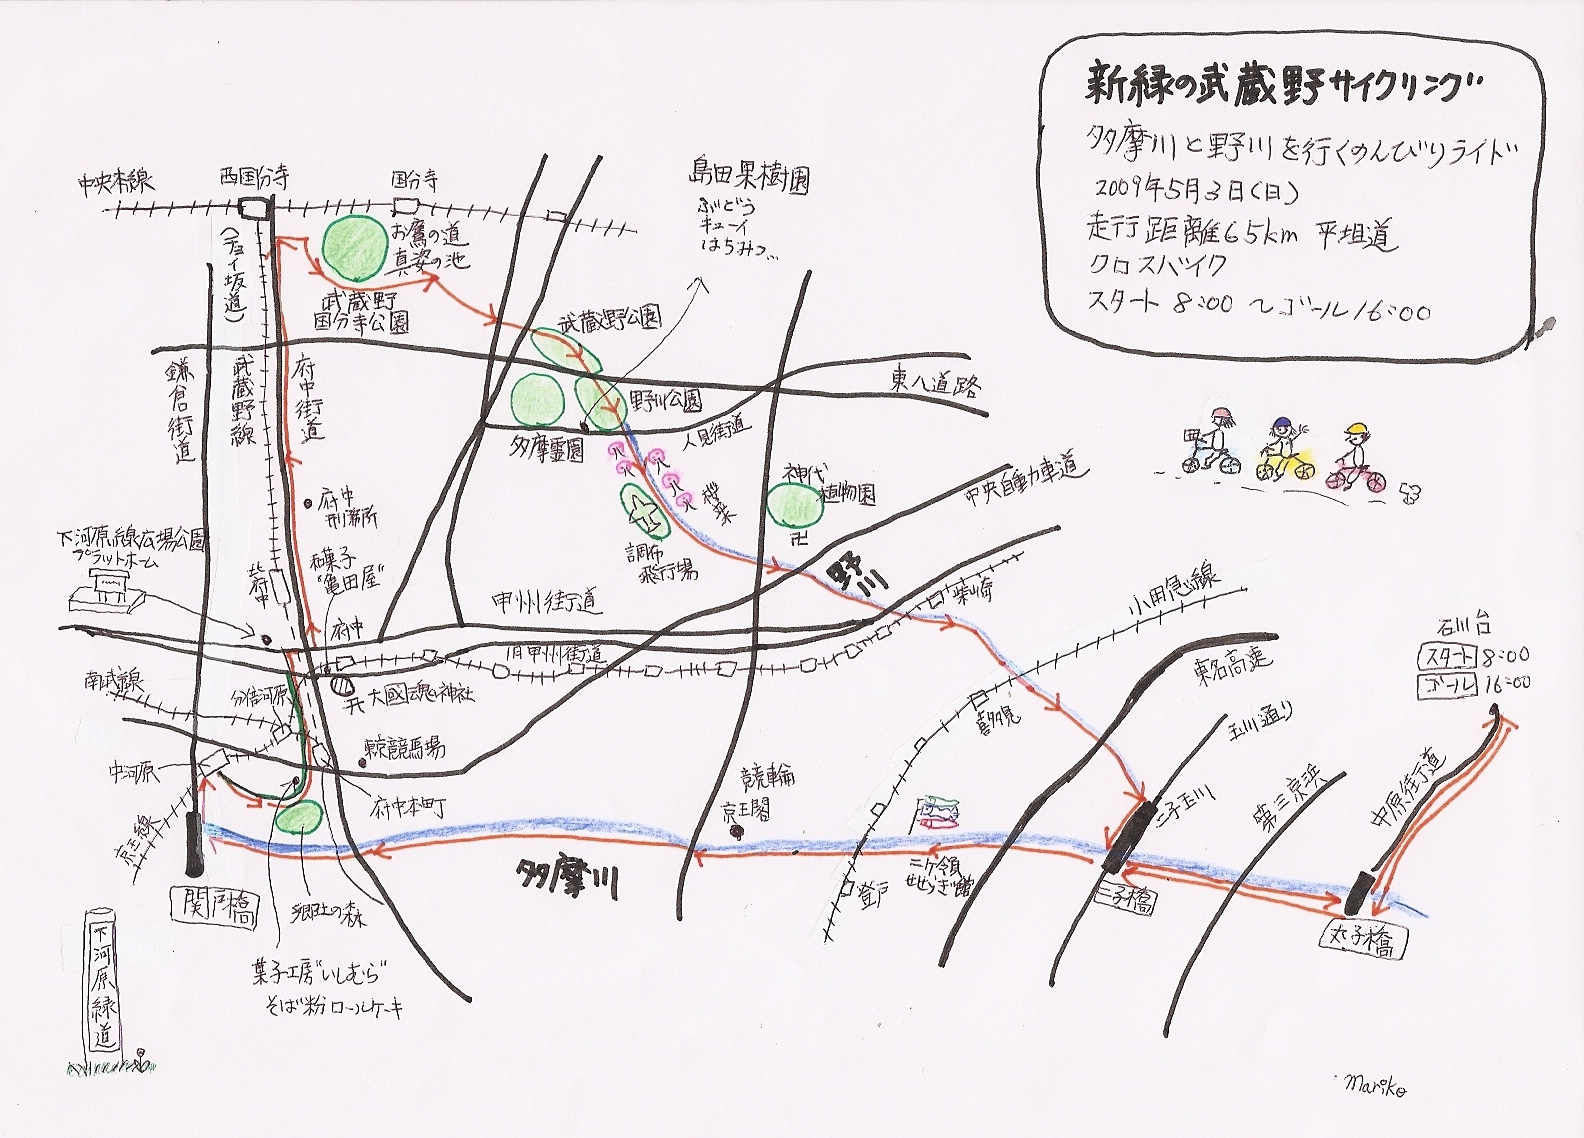 新緑の武蔵野サイクリング
多摩川と野川を行くのんびりライド
2009年5月3日(日)
走行距離65km 平坦道
クロスバイク
スタート 8:00 〜 ゴール 16:00
中央本線
西国分寺
国分寺
島田果樹園
ぶどう
キューイ
はちみつ...
お鷹の道
真姿の池
(チョイ坂道)
武蔵野
国分寺公園
武蔵野公園
鎌倉街道
武蔵野線
府中街道
東八道路
野川公園
人見街道
多摩霊園
神代
植物園
卍
中央自動車道
桜並木
府中
刑務所
下河原線広場公園
プラットホーム
北府中
和菓子
"亀田屋"
調布
飛行場
野川
甲州街道
柴崎
小田急線
府中
旧甲州街道
石川台
スタート 8:00
ゴール 16:00
東名高速
南武線
分倍河原
大國魂神社
喜多見
玉川通り
中河原
東京競馬場
競輪
京王閣
二子玉川
第三京浜
中原街道
府中本町
京王線
多摩川
二ケ領
せせらぎ館
登戸
二子橋
丸子橋
関戸橋
郷土の森
下河原緑道
菓子工房"いしむら"
そば粉ロールケーキ
Mariko